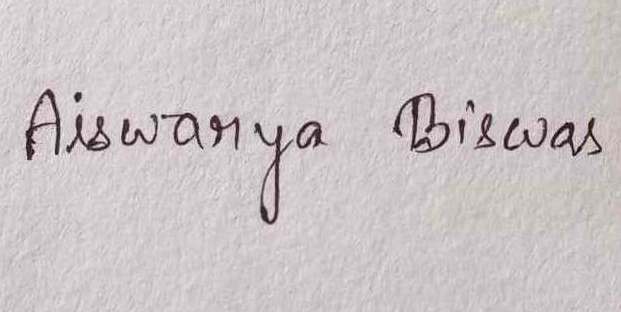 Aiswarya Biswas